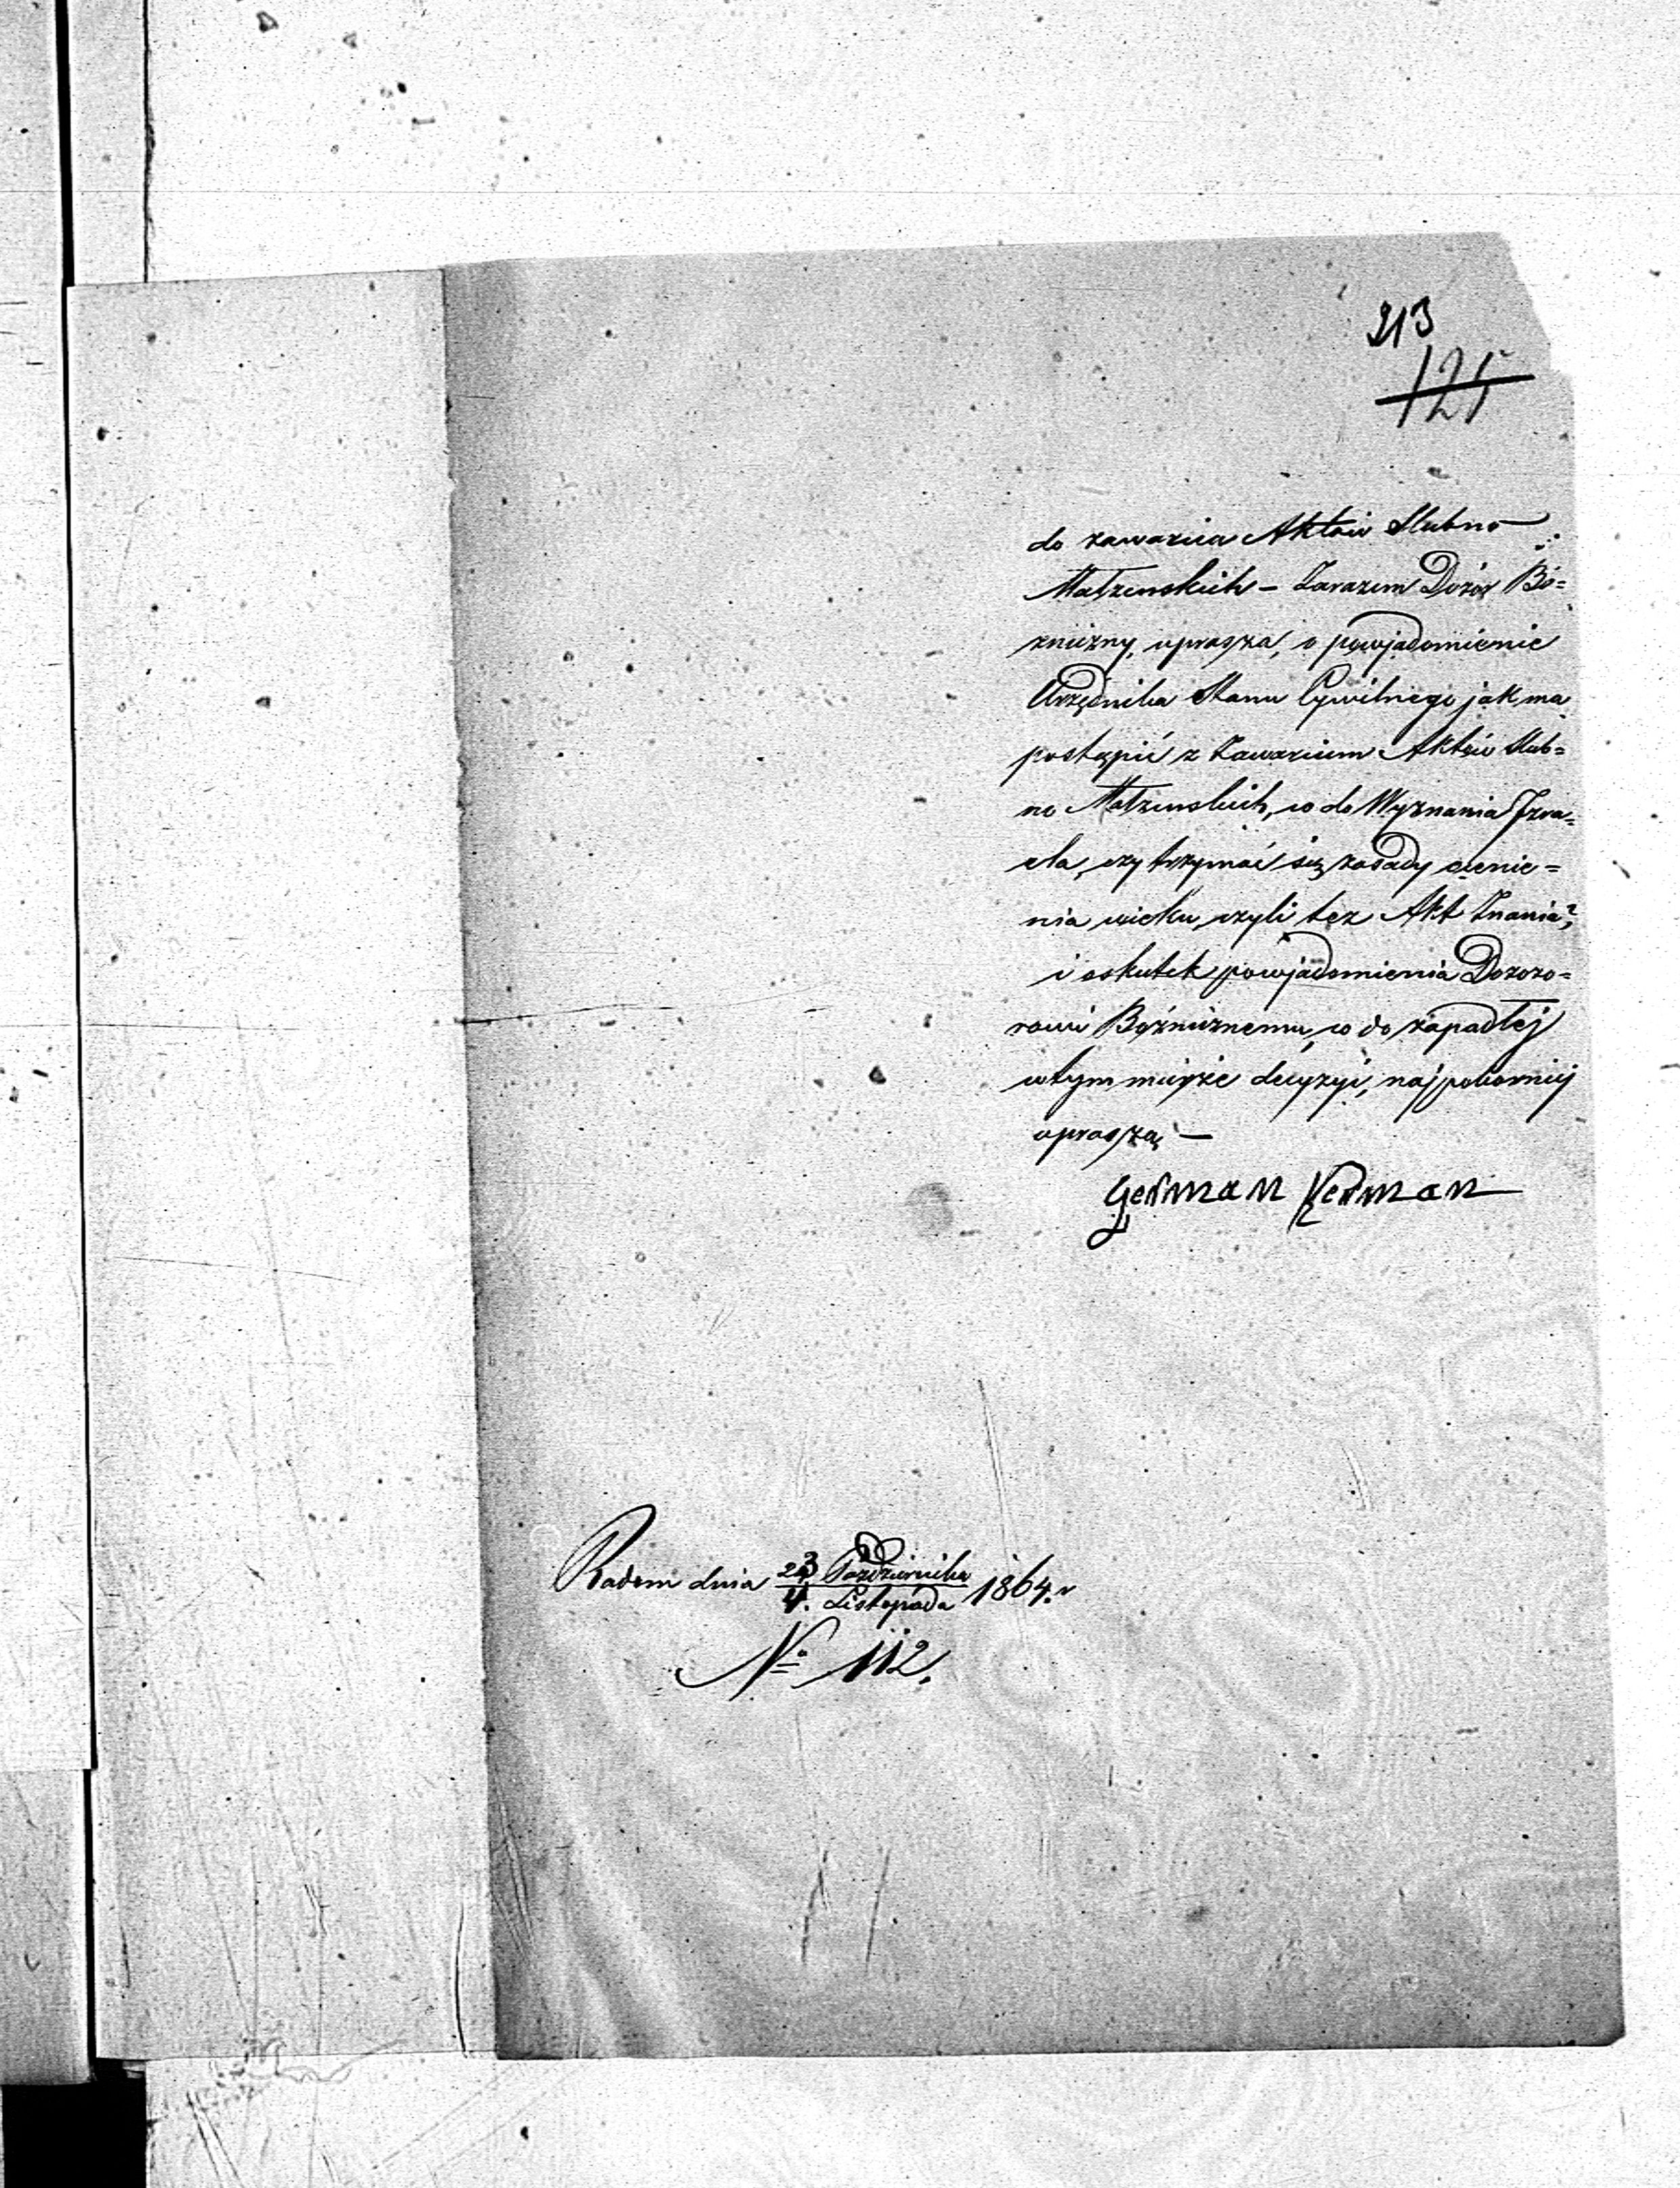 213
121
do zawarcia Aktów Slubno
Małżenskich – Zarazem Dozór Bó=
zniczny, uprasza, o powjadomienie
Urzędnika Stanu Cywilnego jak ma
postąpić z Zawarciem Aktów Slub=
no Małżenskich, co do Wyznania Jzra=
ela, czy trzymać się zasady ocenie=
nia wieku, czyli tez Akt Znania?
i oskutek powjadomienia Dozoro=
rowi Bóżnicznemu, co do zapadłej
wtym mierze decyzyi, najpokorniej
uprasza, –
German Kerman
Radom dnia 23 Października
4. Listopada 1864. r
No 112.